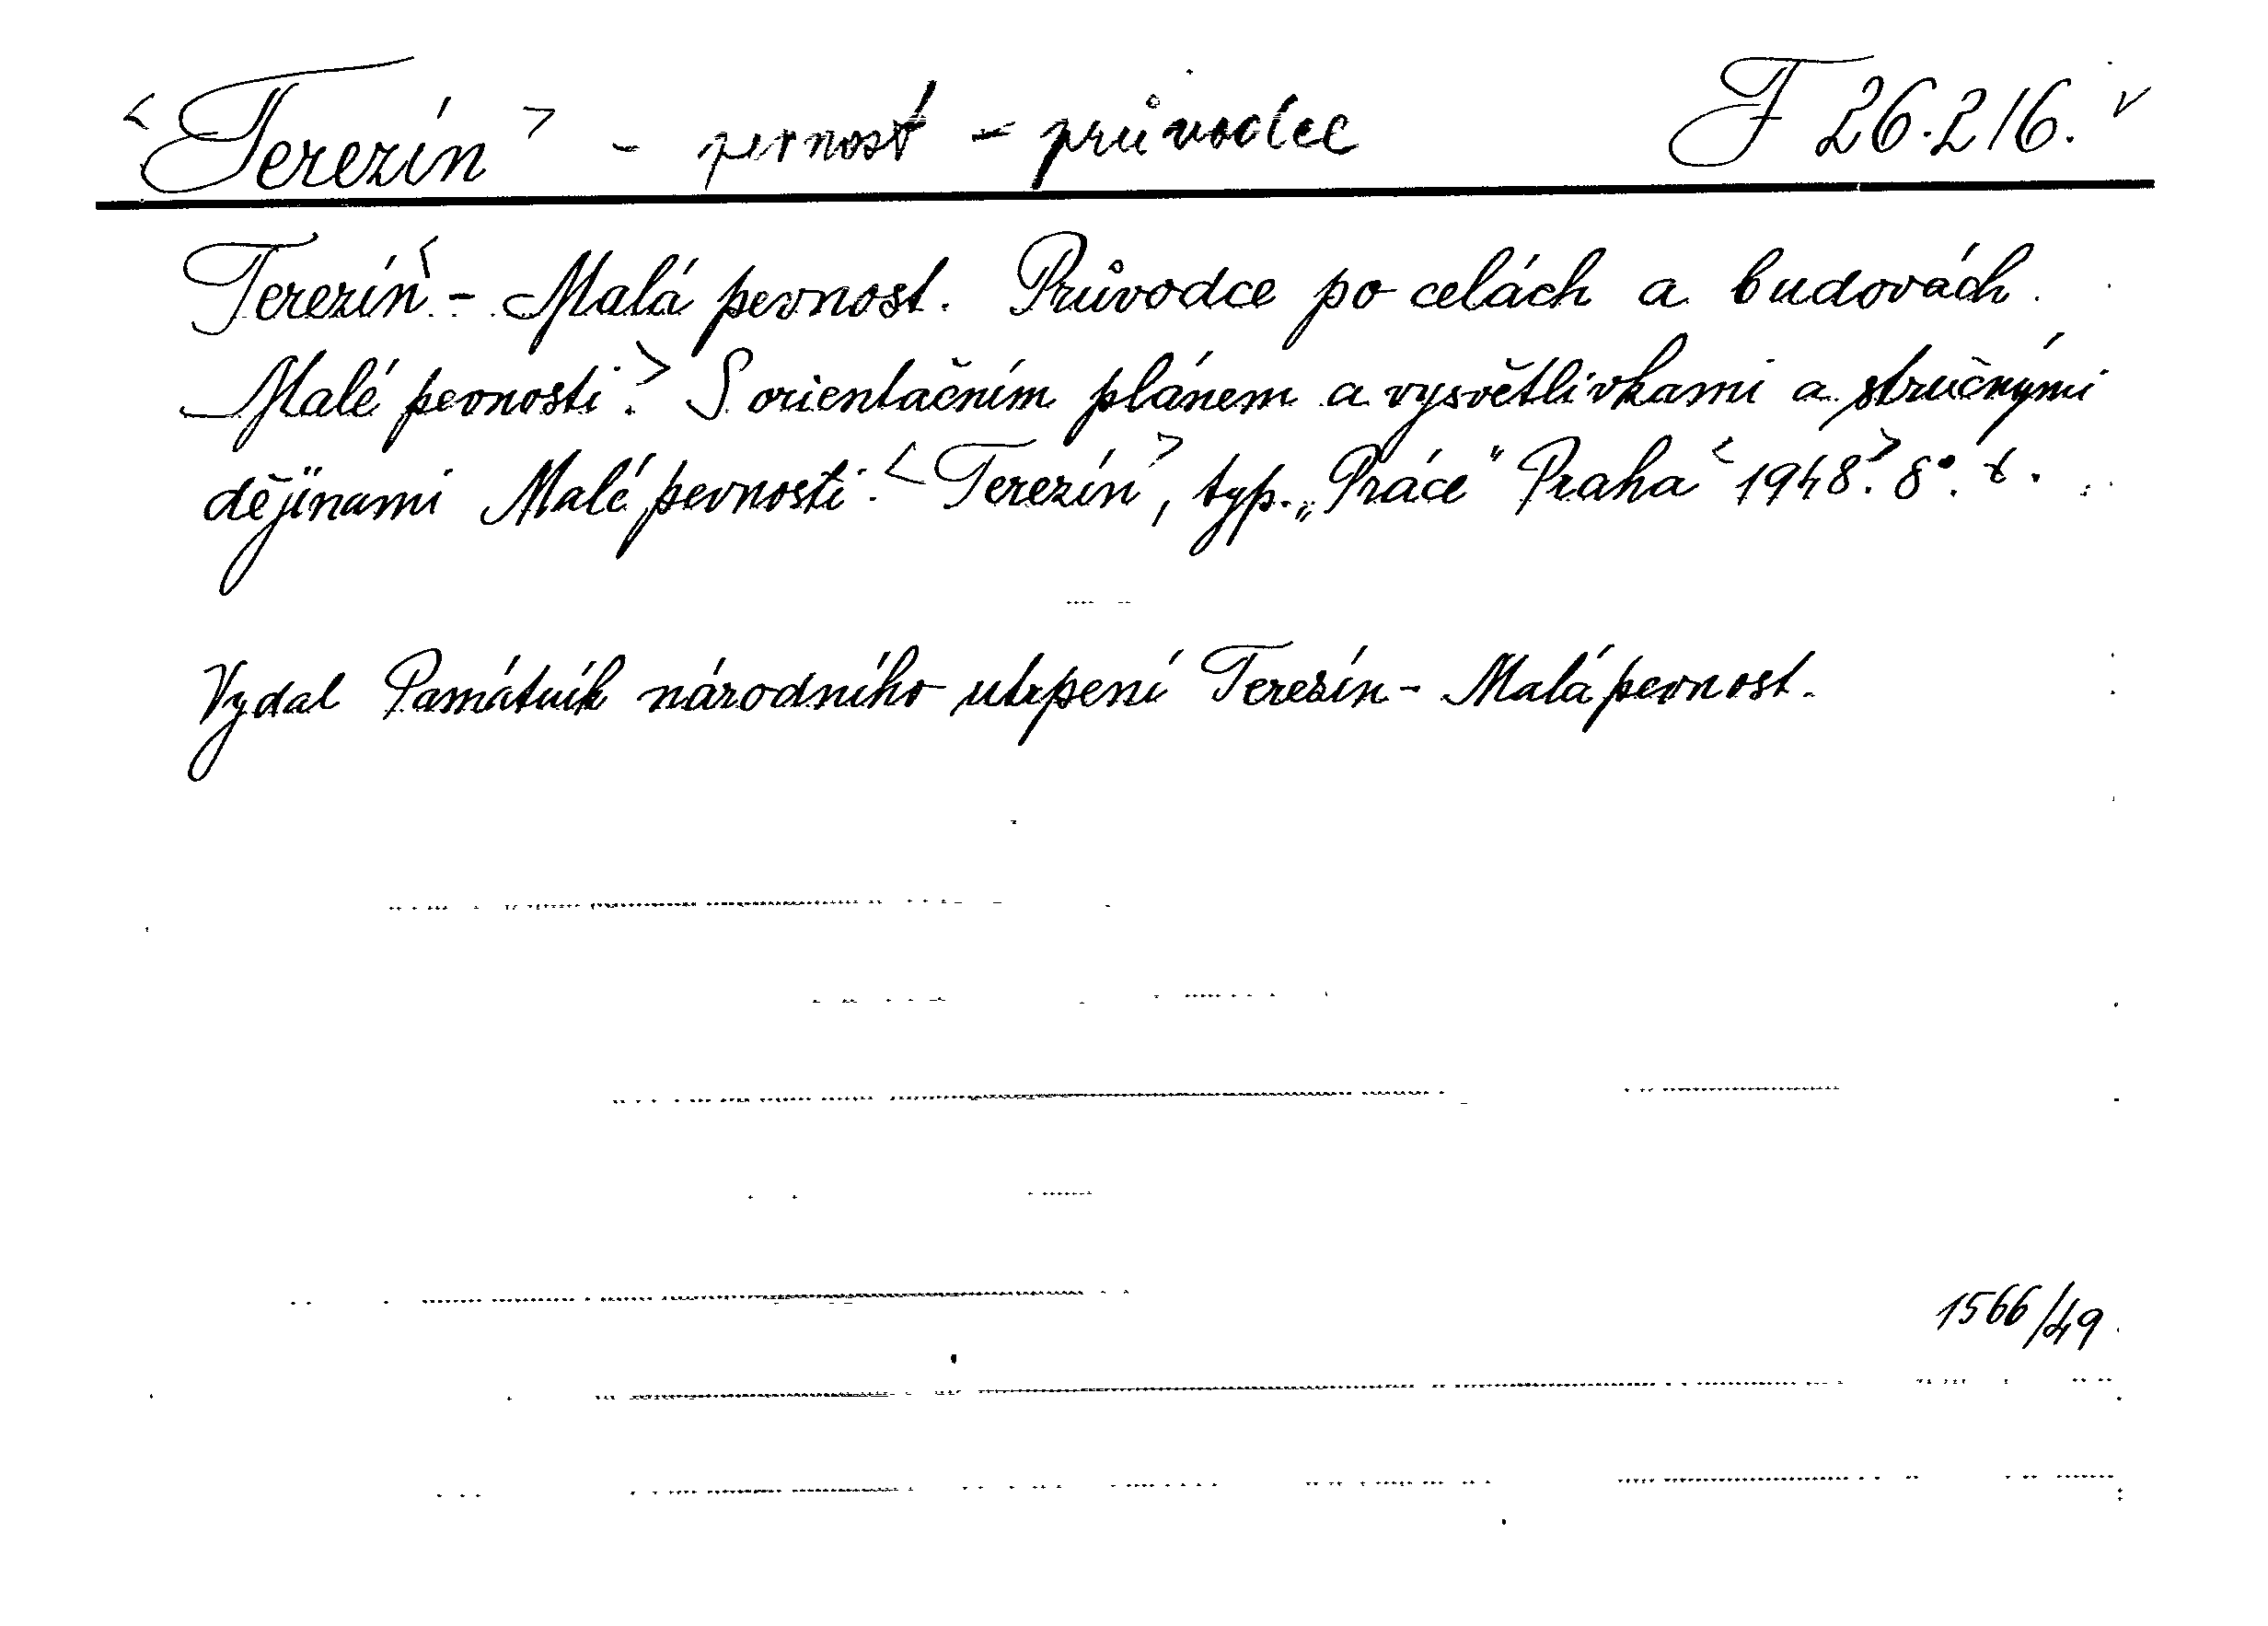 <Terezín> - pevnost - průvodce F 26.216. v
Terezín< - Malá pevnost. Průvodce po celách a budovách
Malé pevnosti.> S orientačním plánem a vysvětlivkami a stručnými
dějinami Malé pevnosti. <Terezín>, typ. „Práce" Praha <1948>. 8°. t.
Vydal Památník národního utrpení Terezín - Malá pevnost.
1566/49.